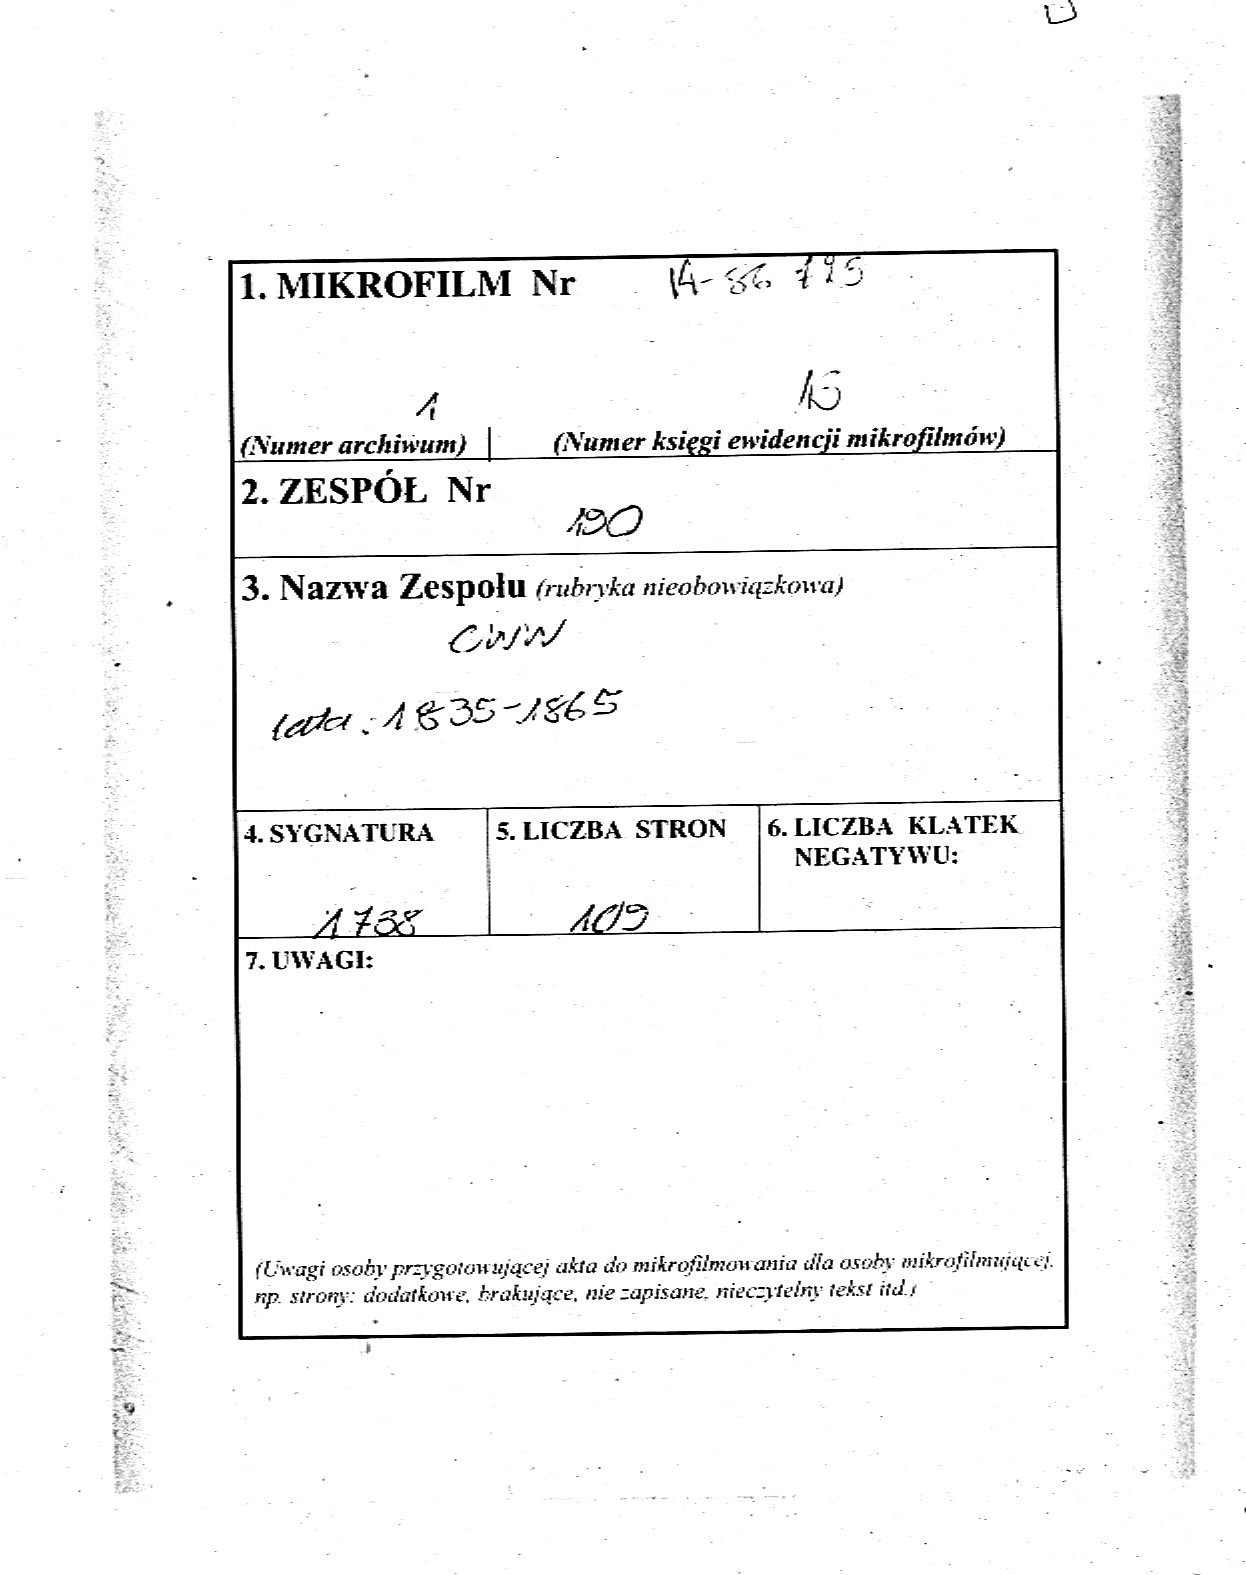 1. MIKROFILM Nr
1
15
(Numer archiwum) (Numer księgi ewidencji mikrofilmów)
2. ZESPÓŁ Nr
190
3. Nazwa Zespołu (rubryka nieobowiązkowa)
CWW
lata: 1835-1865
4. SYGNATURA 5. LICZBA STRON 6. LICZBA KLATEK
NEGATYWU:
1738 109
7. UWAGI:
(Uwagi osoby przygotowującej akta do mikrofilmowania dla osoby mikrofilmującej,
np. strony: dodatkowe, brakujące, nie zapisane, nieczytelny tekst itd.)